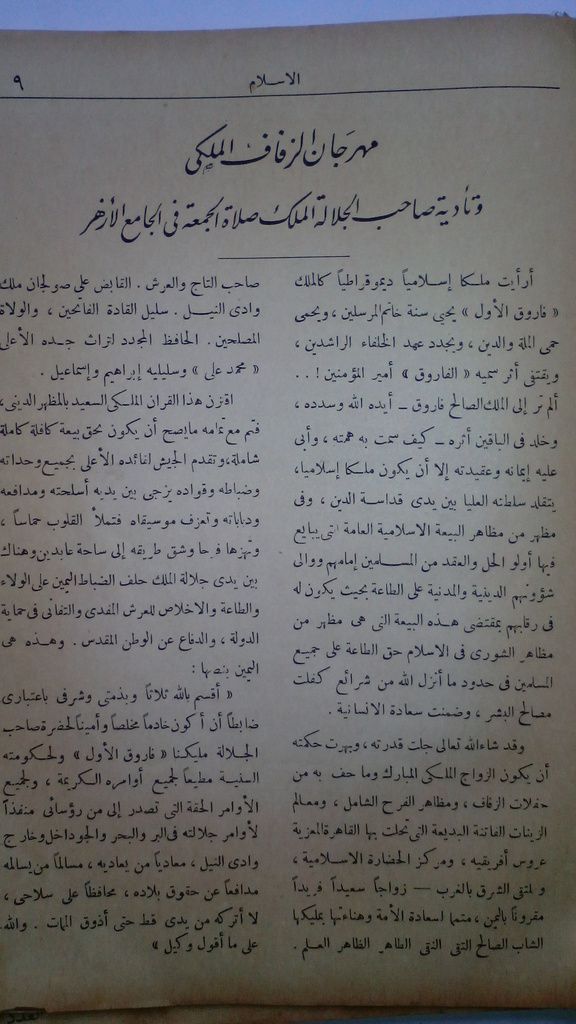 الاسلام
٩
مهرجان الزفاف الملكى
وتأدية صاحب الجلالة الملك صلاة الجمعة فى الجامع الأزهر
أرأيت ملكا إسلامياً ديموقراطياً كالملك
« فاروق الأول » يحيى سنة خاتم المرسلين ، ويحمى
حمى الملة والدين ، ويجدد عهد الخلفاء الراشدين ،
ويقتفى أثر سميه « الفاروق » أمير المؤمنين ! . .
ألم تر إلى الملك الصالح فاروق ــ أيده الله وسدده ،
وخلد فى الباقين أثره ــ كيف سمت به همته ، وأبى
عليه إيمانه وعقيدته إلا أن يكون ملكا إسلاميا ،
يتقلد سلطته العليا بين يدى قداسة الدين ، وفى
مظهر من مظاهر البيعة الاسلامية العامة التى يبايع
فيها أولو الحل والعقد من المسلمين إمامهم ووالى
شؤونهم الدينية والمدنية على الطاعة بحيث يكون له
فى رقابهم بمقتضى هذه البيعة التى هى مظهر من
مظاهر الشورى فى الاسلام حق الطاعة على جميع
المسلمين فى حدود ما أنزل الله من شرائع كفلت
مصالح البشر ، وضمنت سعادة الانسانية .
وقد شاء الله تعالى جلت قدرته ، وبهرت حكمته
أن يكون الزواج الملكى المبارك وما حف به من
حفلات الزفاف ، ومظاهر الفرح الشامل ، ومعالم
الزينات الفاتنة البديعة التى تحلت بها القاهرة المعزية
عروس أفريقيه ، ومركز الحضارة الاسلامية ،
وملتقى الشرق بالغرب ــ زواجاً سعيداً فريداً
مقروناً باليمن ، متمما لسعادة الأمة وهناءتها بمليكها
الشاب الصالح التقى النقى الطاهر الظاهر العلم .
صاحب التاج والعرش . القابض على صولجان ملك
وادى النيل . سليل القادة الفاتحين ، والولاة
المصلحين . الحافظ المجدد لتراث جده الأعلى
« محمد على » وسليليه إبراهيم وإسماعيل .
اقترن هذا القران الملكى السعيد بالمظهر الدينى ،
فتم مع تمامه مايصح أن يكون بحق بيعة كافلة كاملة
شاملة ، وتقدم الجيش لقائده الأعلى بجميع وحداته
وضباطه وقواده يزجى بين يديه أسلحته ومدافعه
ودباباته وتعزف موسيقاه فتملأ القلوب حماساً ،
وتهزها فرحا وشق طريقه إلى ساحة عابدين وهناك
بين يدى جلالة الملك حلف الضباط اليمين على الولاء
والطاعة والاخلاص للعرش المفدى والتفانى فى حماية
الدولة ، والدفاع عن الوطن المقدس . وهذه هى
اليمين بنصها :
« أقسم بالله ثلاثاً وبذمتى وشرفى باعتبارى
ضابطاً أن أكون خادماً مخلصاً وأميناً لحضرة صاحب
الجلالة مليكنا « فاروق الأول » ولحكومته
السنية مطيعاً لجميع أوامره الكريمة ، ولجميع
الأوامر الحقة التى تصدر إلى من رؤسائى منفذاً
لأوامر جلالته فى البر والبحر والجو داخل وخارج
وادى النيل ، معادياً من يعاديه ، مسالماً من يسالمه
مدافعاً عن حقوق بلاده ، محافظاً على سلاحى ،
لا أتركه من يدى قط حتى أذوق الممات . والله
على ما أقول وكيل »